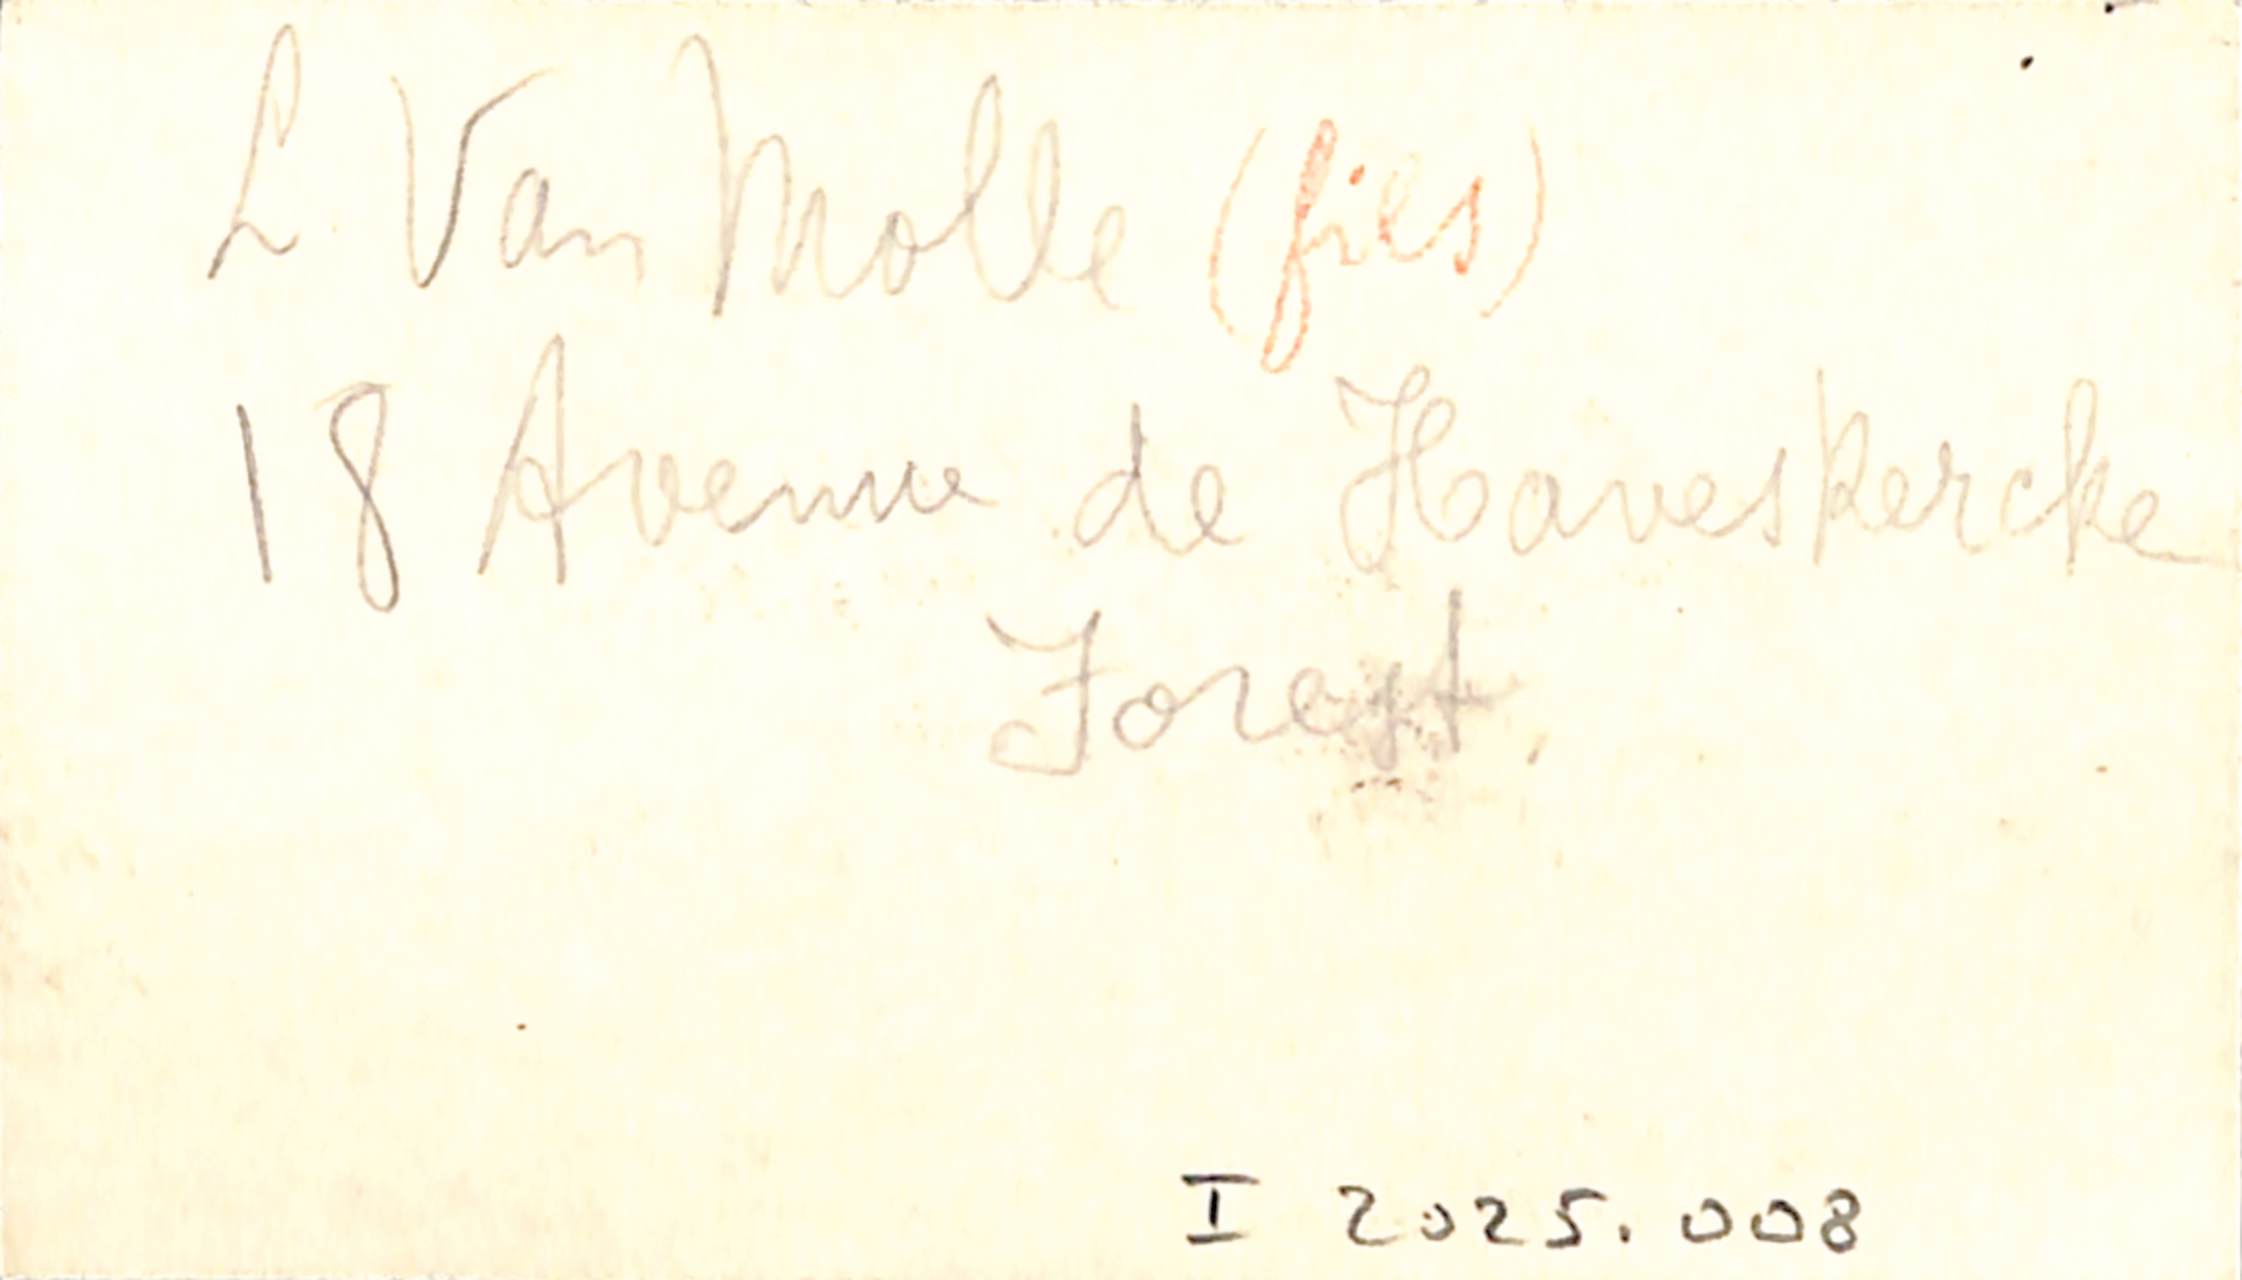 L Van Molle (fils)
18 Avenue de Haveskercke
Forest.
I 2025.008